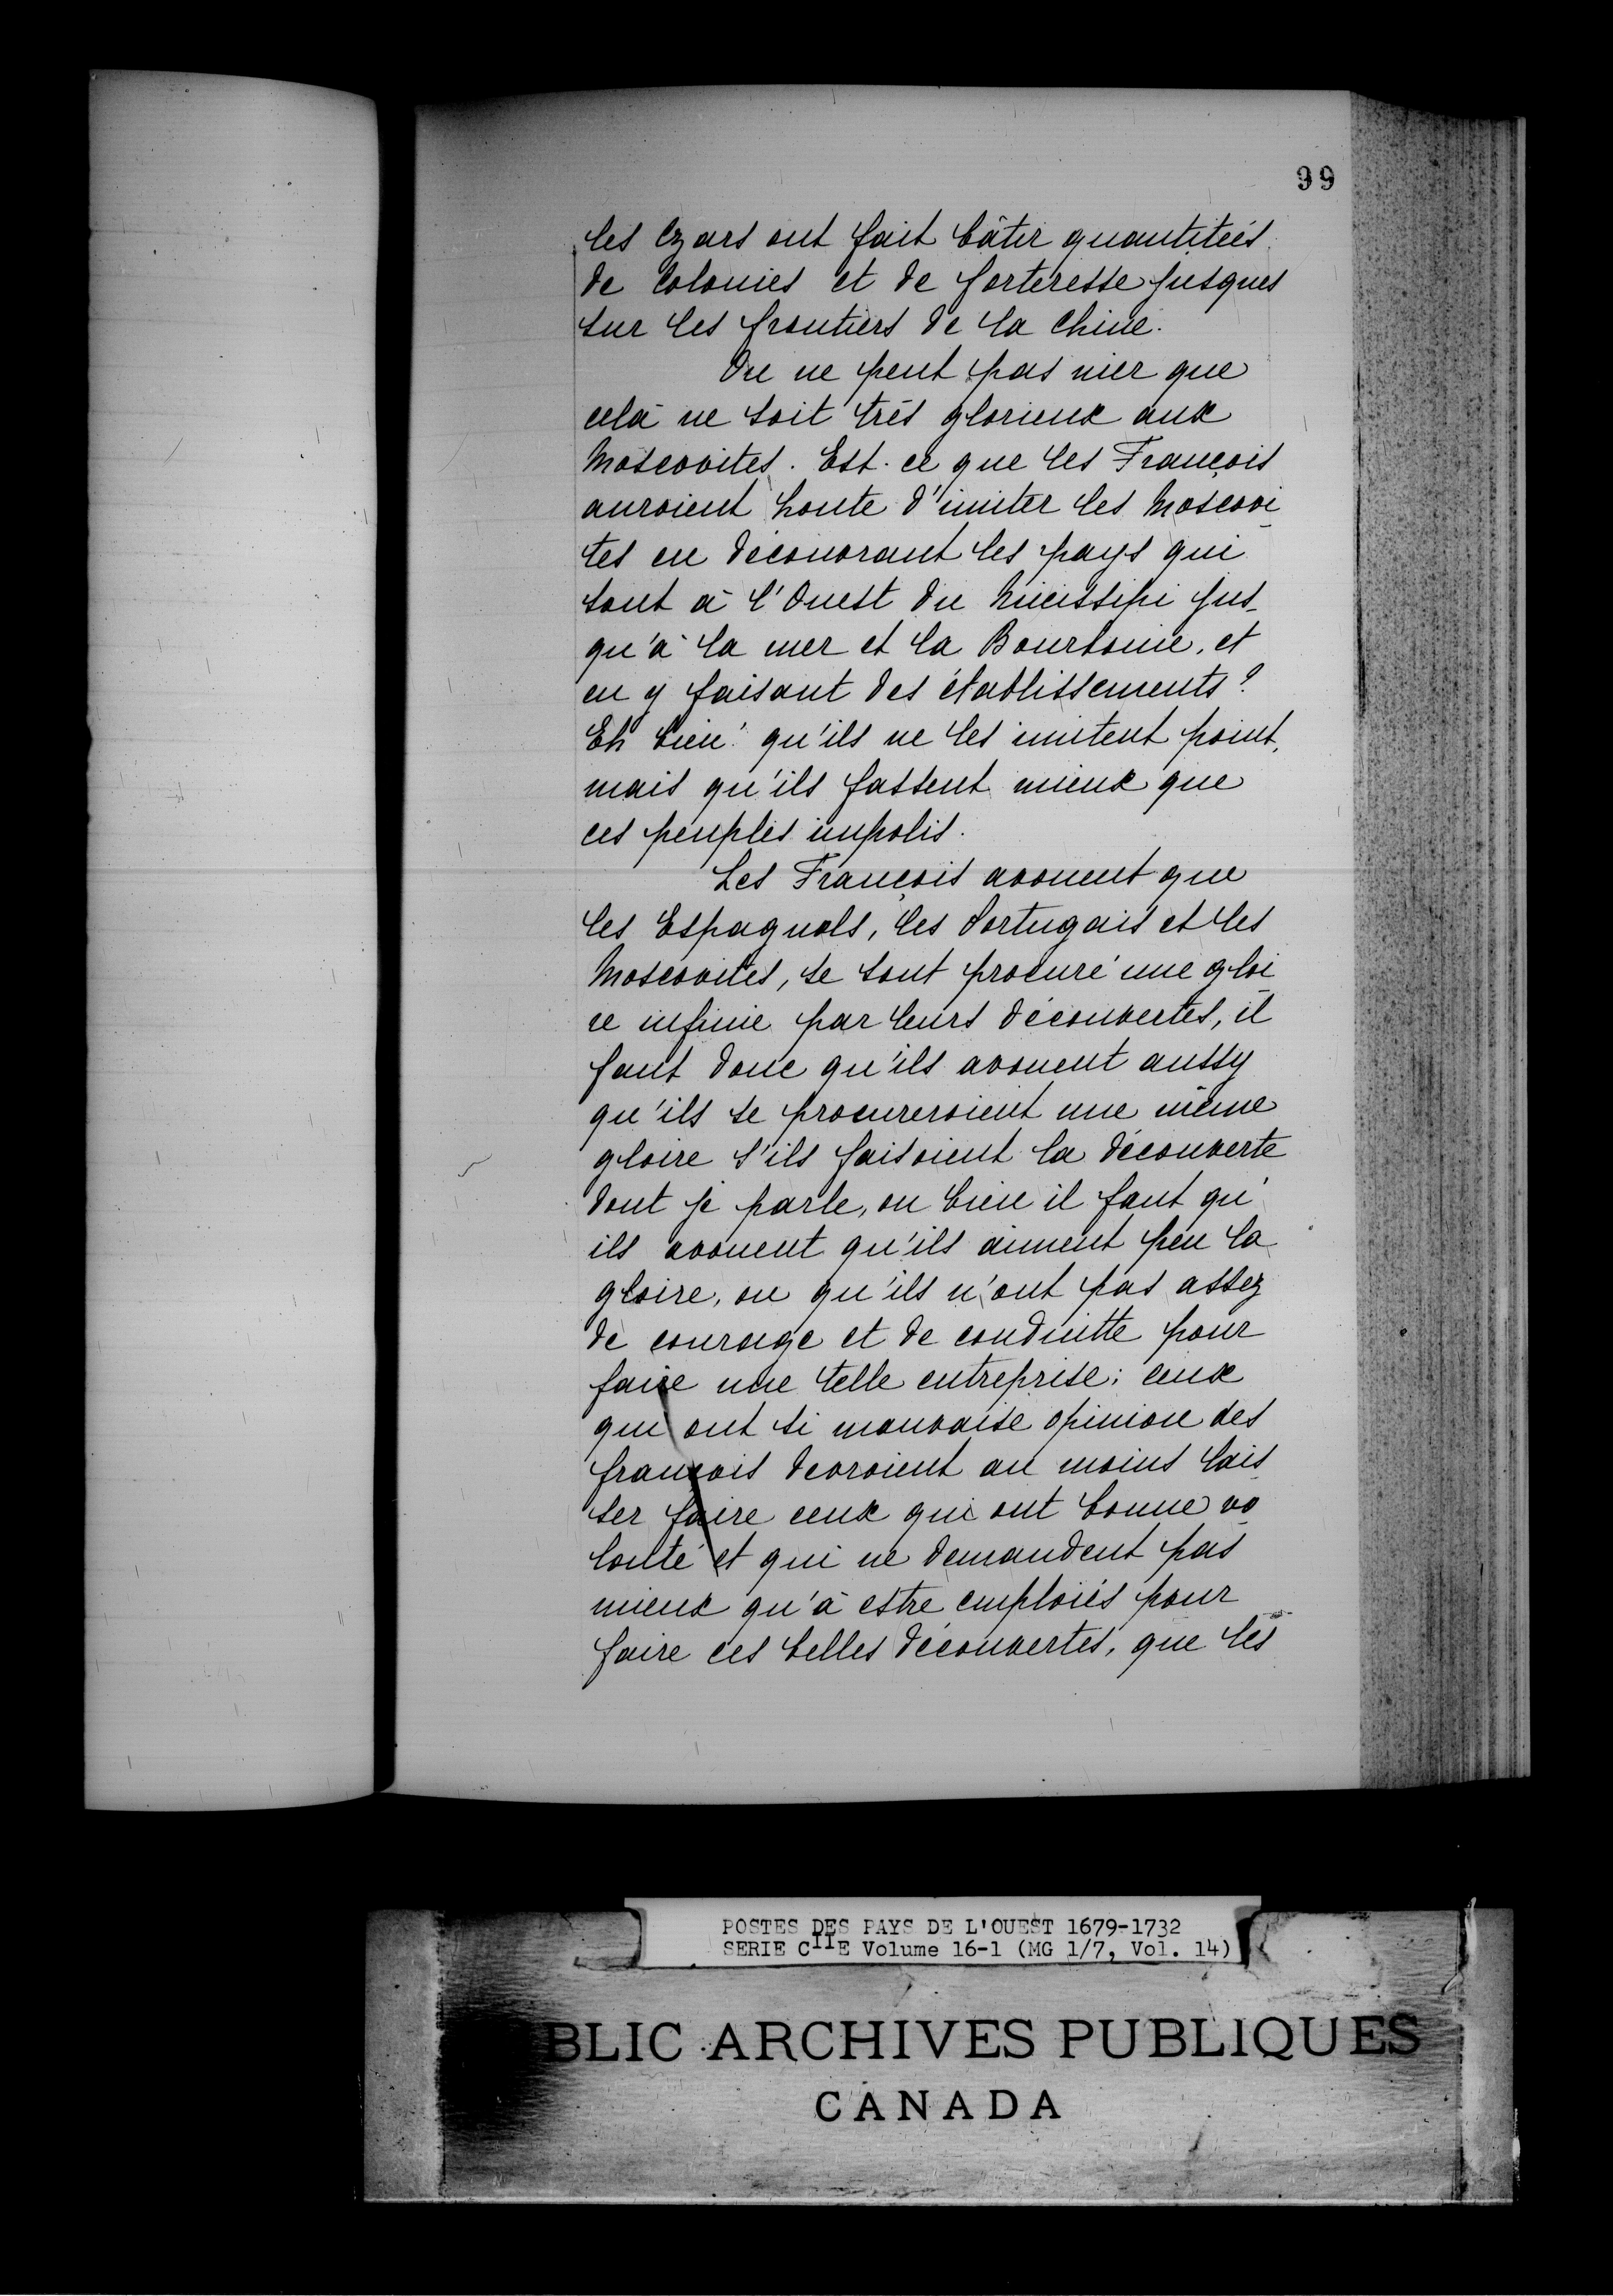 99
les Czars ont fait bâtir quantitéés
de Colonies et de forteresse jusques
sur les frontiers de la Chine.
On ne peut pas nier que
celà ne soit trés glorieux aux
Moscovites. Est-ce que les François
auroient honte d'imiter les Moscovi
tes en découvrant les pays qui
sont à l'Ouest du Micissipi jus-
qu'à la mer et la Bourbonie, et
en y faisant des établissements?
Eh bien! qu'ils ne les imitent point,
mais qu'ils fassent mieux que
ces peuples impolis.
Les François avouent que
les Espagnols, les Portugais et les
Moscovites, se sont procuré une gloi
re infinie par leurs découvertes, il
faut donc qu'ils avouent aussy
qu'ils se procureroient une même
gloire s'ils faisoient la découverte
dont je parle, ou bien il faut qu'
ils avouent qu'ils aiment peu la
gloire, ou qu'ils n'ont pas assez
de courage et de conduitte pour
faire une telle entreprise; ceux
qui ont si mauvaise opinion des
françois devroient au moins lais
ser faire ceux qui ont bonne vo
lonté et qui ne demandent pas
mieux qu'à estre emploiés pour
faire ces belles découvertes, que les
POSTES DES PAYS DE L'OUEST 1679-1732
SERIE CIIE Volume 16-1 (MG 1/7, Vol. 14)
BLIC ARCHIVES PUBLIQUES
CANADA